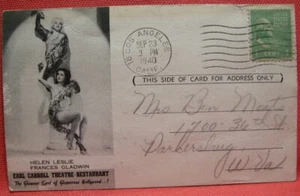 LOS ANGELES
SEP 23
3 PM
1940
CALIF.
THIS SIDE OF CARD FOR ADDRESS ONLY
Mrs Ben
1700-36th St
Parkersburg
W. Va.
HELEN LESLIE
FRANCES GLADWIN
EARL CARROLL THEATRE-RESTAURANT
The Glamour Spot of Glamorous Hollywood...!